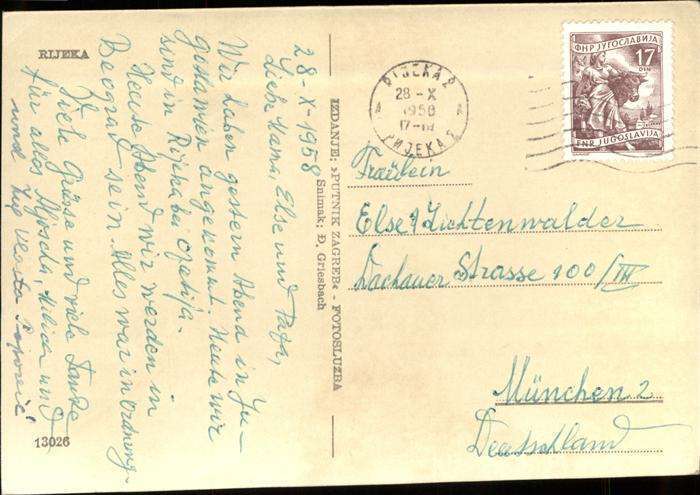 RIJEKA
28-X-1958
Liebe Mama, Else und Papa,
Wir haben gestern Abend in Ju-
goslawien angekommt. Heute wir
sind in Rijeka bei Opatija.
Heute Abend wir werden in
Beograd sein. Alles war in Ordnung.
Viele Grüsse und viele Danke
für alles
und
13026
IZDANJE: »PUTNIK ZAGREB« - FOTOSLUŽBA
Snimak: Đ. Griesbach
RIJEKA 2
28 -X
1958
RIJEKA 2
ФНР ЈУГОСЛАВИЈА
17
DIN
FNR JUGOSLAVIJA
Fräulein
Else Lichtenwalder
Dachauer Strasse 100/III
München 2
Deutschland